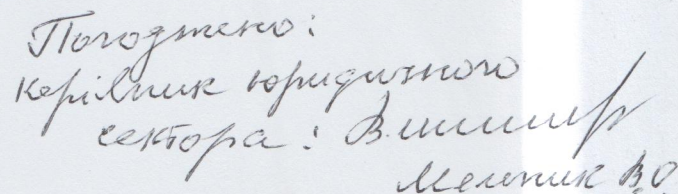 Погоджено:
Керівник юридичного
сектора:
Мельник В.О.